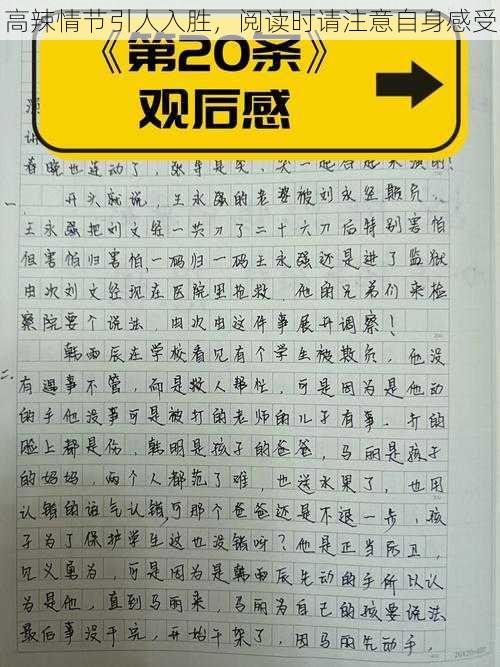 高辣情节引人入胜，阅读时请注意自身感受
《第20条》
观后感
春晚也连动了，
开头就说，王永强的老婆被刘永经欺负，
王永强把刘文经一共刀了二十六刀后特别害怕
但害怕归害怕，一码归一码王永强还是进了监狱
由次刘文经现在医院里抢救，他的兄弟们来检
察院要个说法，由次由这件事展开调察！
一、
二、
韩雨辰在学校看见有个学生被欺负，他没
有遇事不管，而是救人帮忙，可是因为是他动
的手他没事可是被打的老师的儿子有事。打的
脸上都是伤，韩明是孩子的爸爸，马丽是孩子
的妈妈，两个人都范了难，也送水果了，也用
认错的语气认错，可那个爸爸还是不退一步，孩
子为了保护学生这也没错呀？他是正当防卫，
见义勇为，可是因为是韩雨辰先动的手所以认
为是他，直到马丽来，马丽为自己的孩要说法
最后事没干完，开始干架了，因马丽先动手，